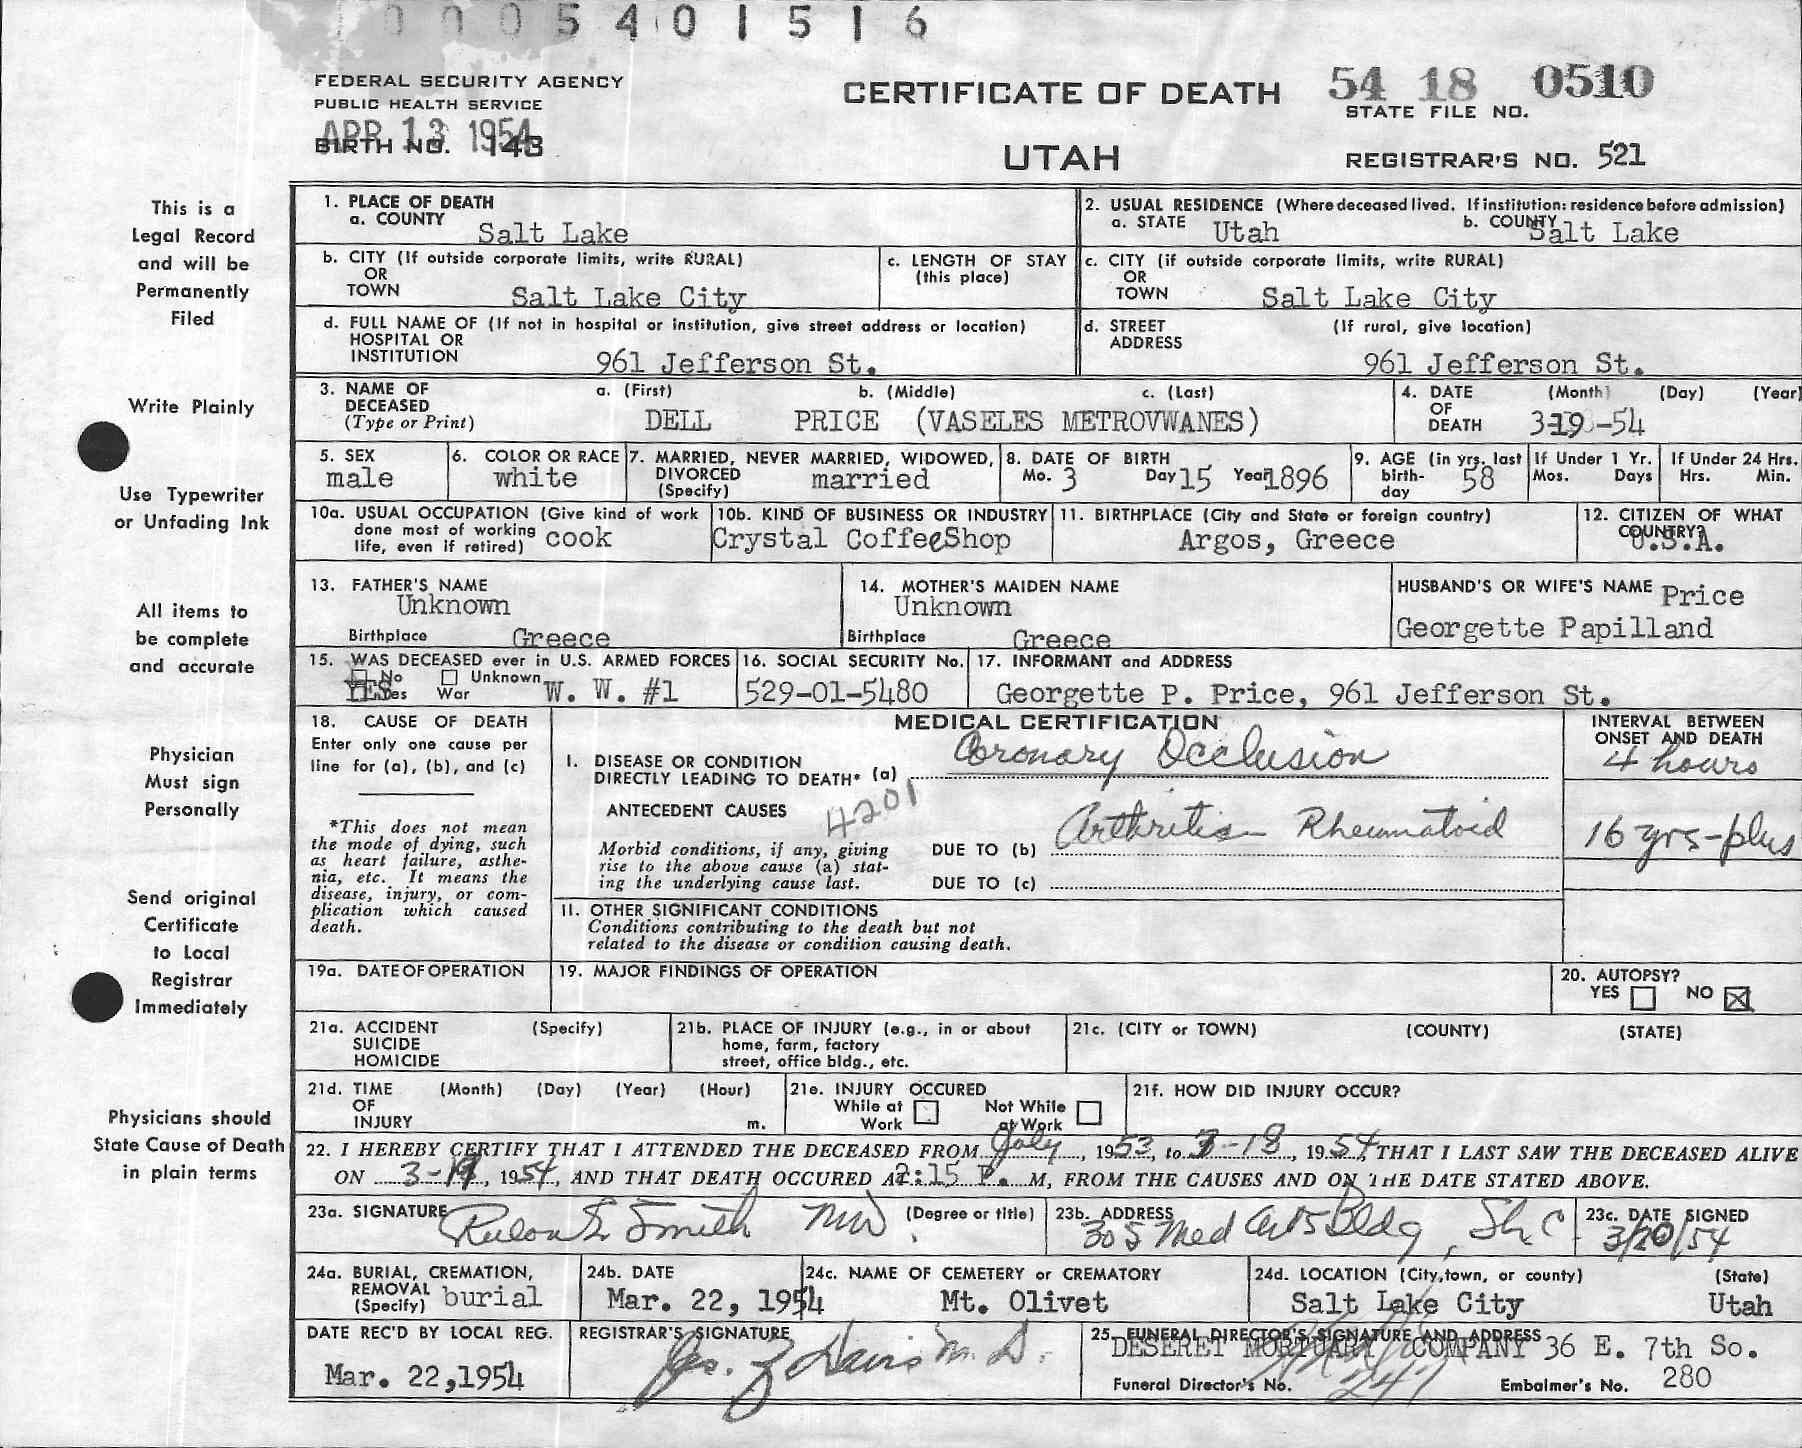 0 0 0 5 4 0 1 5 1 6
FEDERAL SECURITY AGENCY
PUBLIC HEALTH SERVICE
APR 13 1954
BIRTH NO. 143
CERTIFICATE OF DEATH
UTAH
54 18 0510
STATE FILE NO.
REGISTRAR'S NO. 521
This is a
Legal Record
and will be
Permanently
Filed
Write Plainly
Use Typewriter
or Unfading Ink
All items to
be complete
and accurate
Physician
Must sign
Personally
Send original
Certificate
to Local
Registrar
Immediately
Physicians should
State Cause of Death
in plain terms
1. PLACE OF DEATH
a. COUNTY Salt Lake
2. USUAL RESIDENCE (Where deceased lived. If institution: residence before admission)
a. STATE Utah b. COUNTY Salt Lake
b. CITY (If outside corporate limits, write RURAL)
OR
TOWN Salt Lake City
c. LENGTH OF STAY
(this place)
c. CITY (if outside corporate limits, write RURAL)
OR
TOWN Salt Lake City
d. FULL NAME OF (If not in hospital or institution, give street address or location)
HOSPITAL OR
INSTITUTION 961 Jefferson St.
d. STREET (If rural, give location)
ADDRESS
961 Jefferson St.
3. NAME OF a. (First) b. (Middle) c. (Last)
DECEASED
(Type or Print) DELL PRICE (VASELES METROVWANES)
4. DATE (Month) (Day) (Year)
OF
DEATH 3-19-54
5. SEX
male
6. COLOR OR RACE
white
7. MARRIED, NEVER MARRIED, WIDOWED,
DIVORCED married
(Specify)
8. DATE OF BIRTH
Mo. 3 Day 15 Year 1896
9. AGE (in yrs. last
birth- 58
day
If Under 1 Yr.
Mos. Days
If Under 24 Hrs.
Hrs. Min.
10a. USUAL OCCUPATION (Give kind of work
done most of working
life, even if retired) cook
10b. KIND OF BUSINESS OR INDUSTRY
Crystal CoffeeShop
11. BIRTHPLACE (City and State or foreign country)
Argos, Greece
12. CITIZEN OF WHAT
COUNTRY?
U.S.A.
13. FATHER'S NAME
Unknown
Birthplace Greece
14. MOTHER'S MAIDEN NAME
Unknown
Birthplace Greece
HUSBAND'S OR WIFE'S NAME Price
Georgette Papilland
15. WAS DECEASED ever in U.S. ARMED FORCES
No Unknown
YES Yes War W. W. #1
16. SOCIAL SECURITY No.
529-01-5480
17. INFORMANT and ADDRESS
Georgette P. Price, 961 Jefferson St.
18. CAUSE OF DEATH
Enter only one cause per
line for (a), (b), and (c)
*This does not mean
the mode of dying, such
as heart failure, asthe-
nia, etc. It means the
disease, injury, or com-
plication which caused
death.
MEDICAL CERTIFICATION
I. DISEASE OR CONDITION
DIRECTLY LEADING TO DEATH* (a) Coronary Occlusion
ANTECEDENT CAUSES 4201
Morbid conditions, if any, giving
rise to the above cause (a) stat-
ing the underlying cause last.
DUE TO (b) Arthritis Rheumatoid
DUE TO (c)
INTERVAL BETWEEN
ONSET AND DEATH
4 hours
16 yrs-plus
II. OTHER SIGNIFICANT CONDITIONS
Conditions contributing to the death but not
related to the disease or condition causing death.
19a. DATE OF OPERATION
19. MAJOR FINDINGS OF OPERATION
20. AUTOPSY?
YES NO
21a. ACCIDENT (Specify)
SUICIDE
HOMICIDE
21b. PLACE OF INJURY (e.g., in or about
home, farm, factory
street, office bldg., etc.
21c. (CITY or TOWN) (COUNTY) (STATE)
21d. TIME (Month) (Day) (Year) (Hour)
OF
INJURY m.
21e. INJURY OCCURED
While at Not While
Work at Work
21f. HOW DID INJURY OCCUR?
22. I HEREBY CERTIFY THAT I ATTENDED THE DECEASED FROM July, 1953, to 3-18, 1954, THAT I LAST SAW THE DECEASED ALIVE
ON 3-19, 1954, AND THAT DEATH OCCURED AT 2:15 P. M, FROM THE CAUSES AND ON THE DATE STATED ABOVE.
23a. SIGNATURE Rulon S. Smith MD (Degree or title)
23b. ADDRESS
305 Med Arts Bldg, SLC
23c. DATE SIGNED
3/20/54
24a. BURIAL, CREMATION,
REMOVAL
(Specify) burial
24b. DATE
Mar. 22, 1954
24c. NAME OF CEMETERY or CREMATORY
Mt. Olivet
24d. LOCATION (City, town, or county) (State)
Salt Lake City Utah
DATE REC'D BY LOCAL REG.
Mar. 22,1954
REGISTRAR'S SIGNATURE
Jas. Z Davis M.D.
25. FUNERAL DIRECTOR'S SIGNATURE AND ADDRESS
DESERET MORTUARY COMPANY 36 E. 7th So.
Funeral Director's No. 247 Embalmer's No. 280